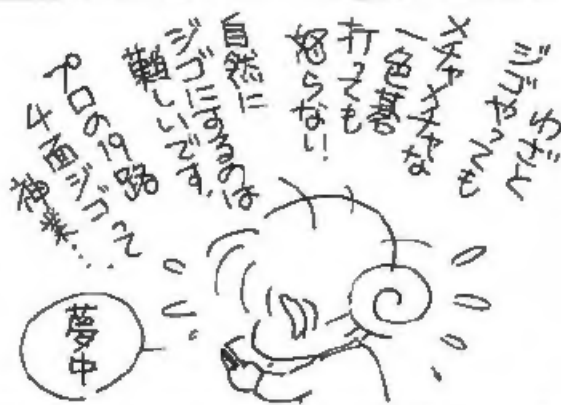 わざと
ジゴやっても
メチャメチャな
一色碁
打っても
怒らない!
自然に
ジゴにするのは
難しいです。
プロの19路
4面ジゴって
神業...
夢中